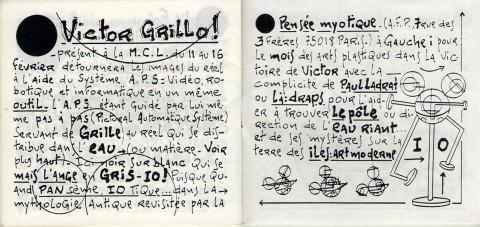 Victor Grillo!
présent à la M.C.L. du 11 au 16
février détournera les images du réel
à l'aide du système A.P.S=Vidéo, ro-
botique et informatique en un même
outil. l'A.P.S étant guidé par lui mê-
me pas à pas (Pictoral Automatique Système)
Servant de Grille au réel qui se dis-
tribue dans l'eau → (ou matière. Voir
plus haut). Ici noir sur blanc qui se
mais l'ange en GRIS-IO! Puisque qu-
and PAN sème, IO Tique... dans la →
mythologie Antique revisitée par la
Pensée myotique. (A.F.P. 7 rue des
3 Frères 75018 PARIS.) à Gauche i pour
le mois des arts plastiques dans la vic-
toire de Victor avec la
complicité de Paul Ladrat
ou là: draps, pour l'aid-
er à trouver le pôle ou di-
rection de l'eau riant...
et de ses mystères sur la
terre des iles: art moderne
I O